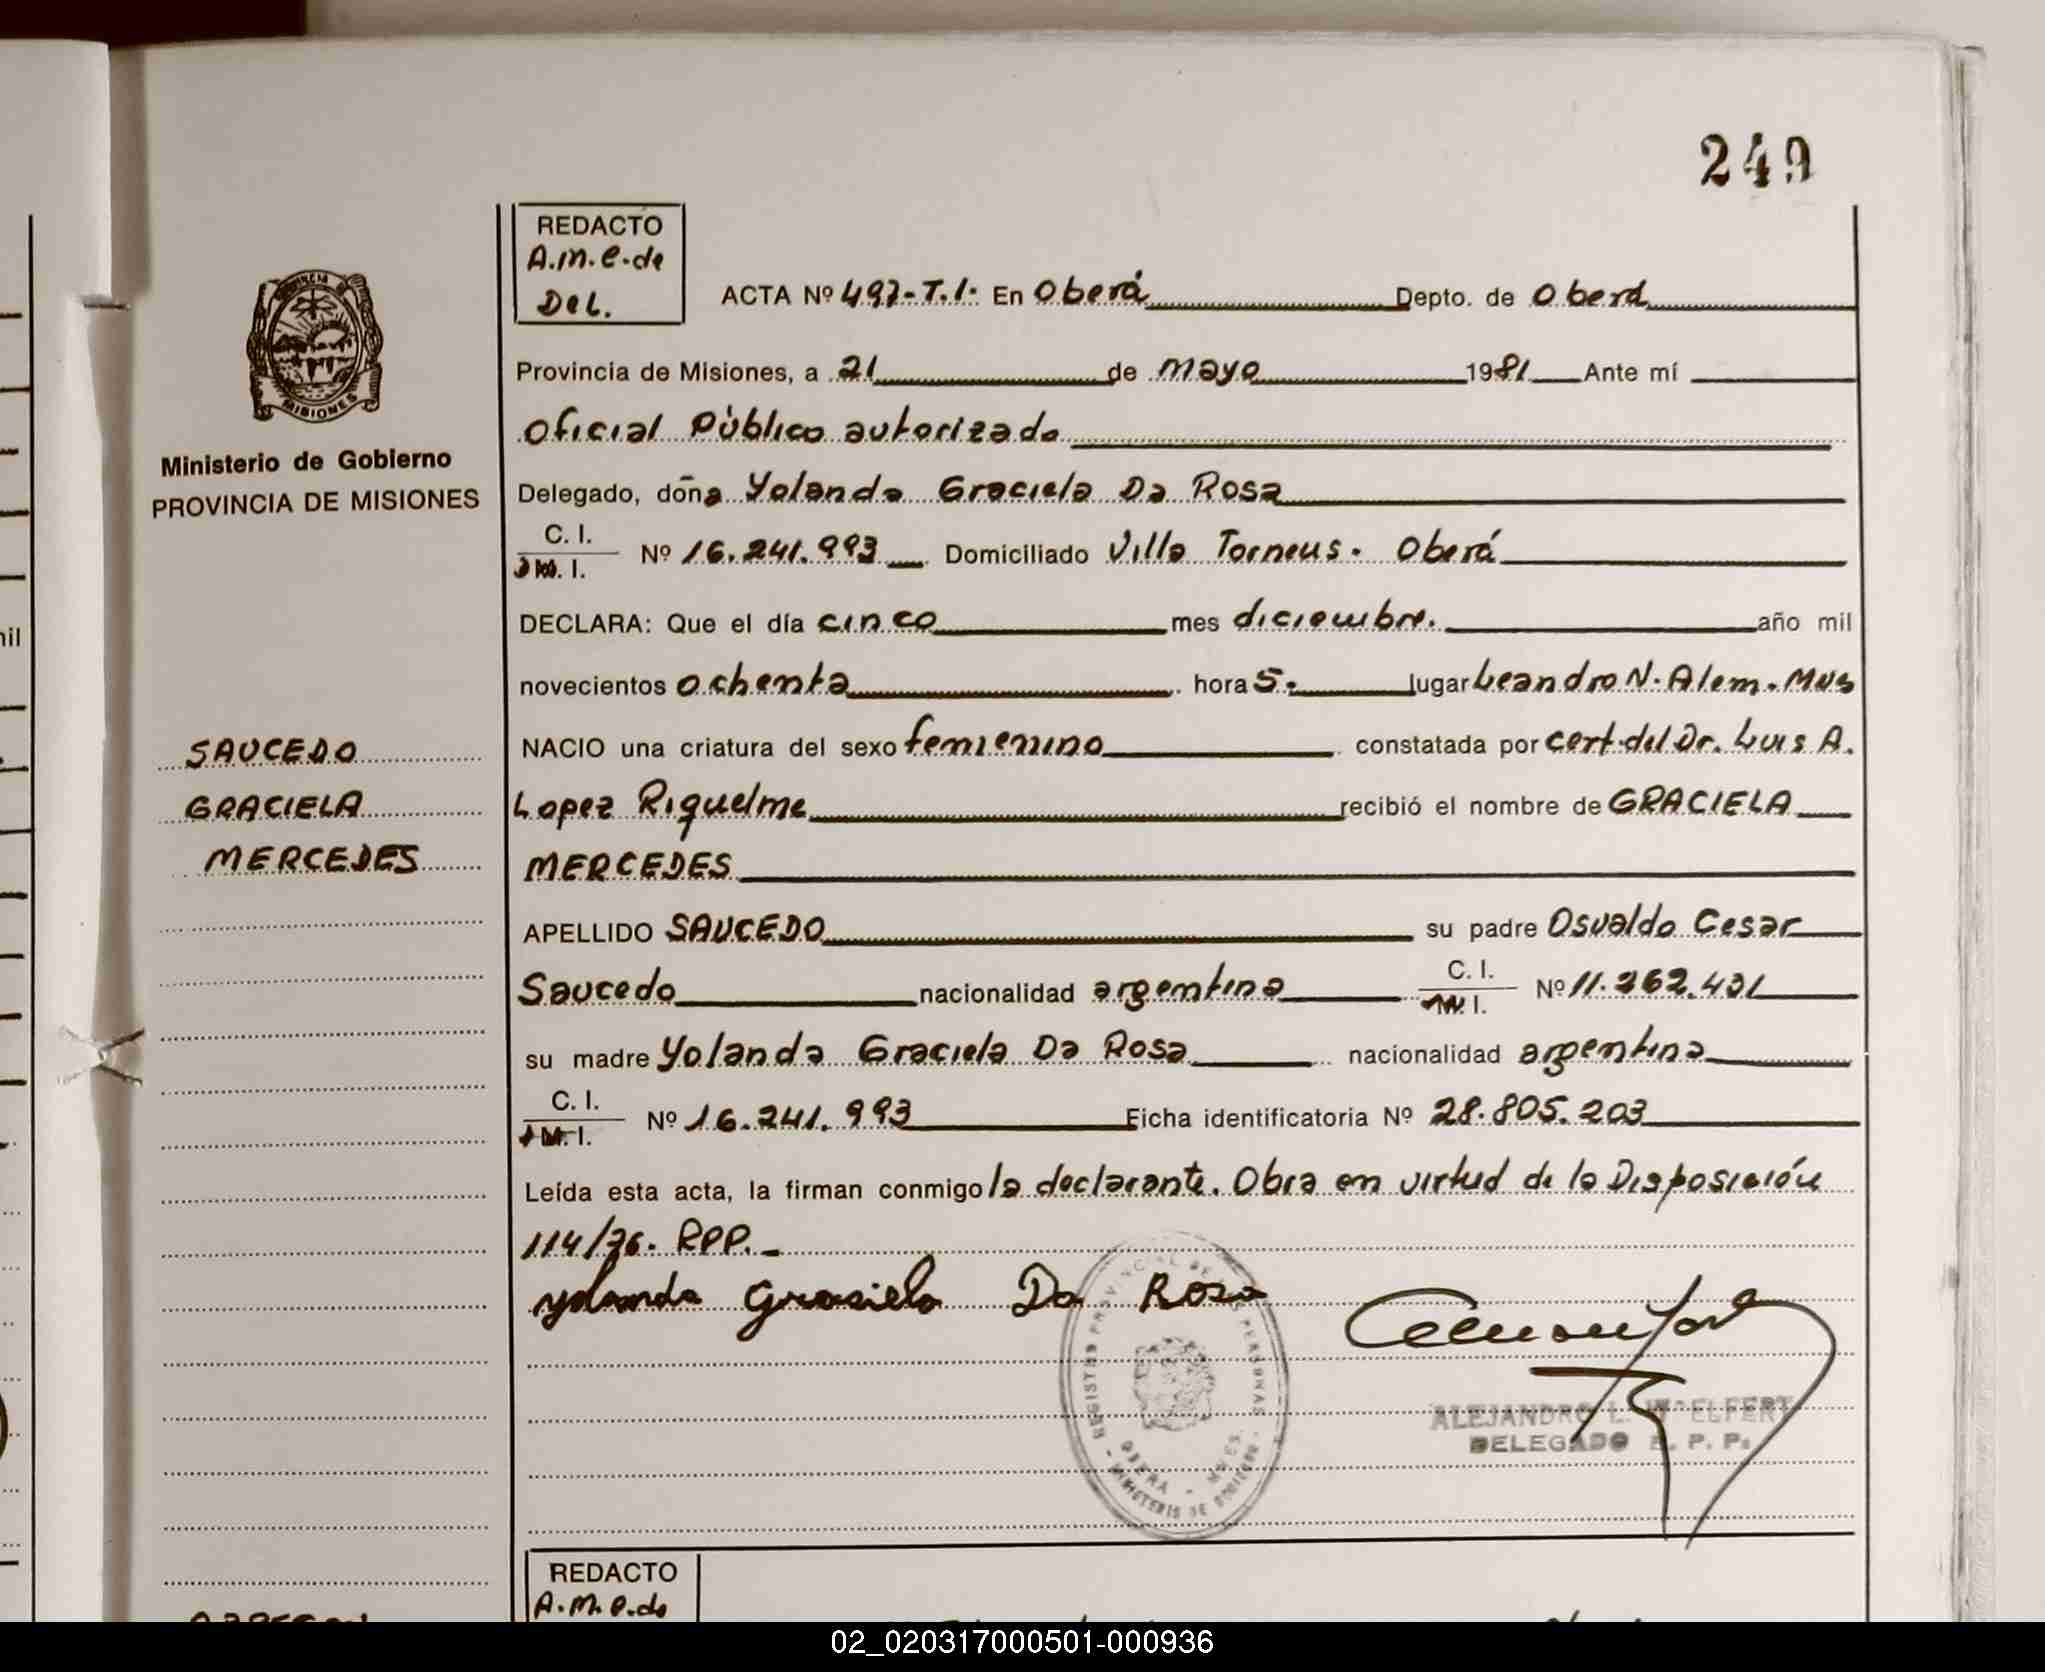 249
REDACTO
A.M.E. de
Del.
ACTA Nº 497-T.I. En Oberá Depto. de Oberá
Provincia de Misiones, a 21 de mayo 1981 Ante mí
Oficial Público autorizado
Delegado, doña Yolanda Graciela Da Rosa
C. I.
M. I. Nº 16.241.993 Domiciliado Villa Torneus. Oberá
DECLARA: Que el día cinco mes diciembre. año mil
novecientos ochenta hora 5. lugar Leandro N. Alem. Mns
NACIO una criatura del sexo femienino constatada por cert. del Dr. Luis A.
Lopez Riquelme recibió el nombre de GRACIELA
MERCEDES
APELLIDO SAUCEDO su padre Osvaldo Cesar
Saucedo nacionalidad argentina C. I. M. I. Nº 11.262.431
su madre Yolanda Graciela Da Rosa nacionalidad argentina
C. I.
M. I. Nº 16.241.993 Ficha identificatoria Nº 28.805.203
Leída esta acta, la firman conmigo la declarante. Obra en virtud de la Disposición
114/76. RPP.
Yolanda Grasiela Da Rosa
REGISTRO PROVINCIAL DE LAS PERSONAS
OBERA - MNES.
MINISTERIO DE GOBIERNO
ALEJANDRO L. ELFERT
DELEGADO R. P. P.
PROVINCIA DE
MISIONES
Ministerio de Gobierno
PROVINCIA DE MISIONES
SAUCEDO
GRACIELA
MERCEDES
REDACTO
A.M.E. de
nil
02_020317000501-000936